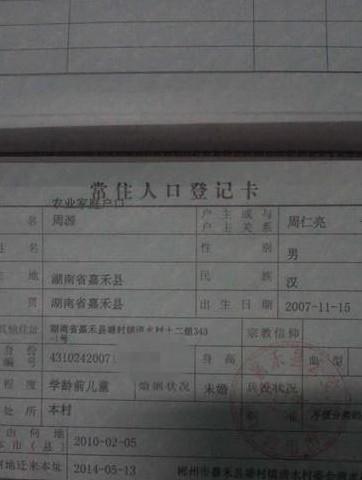 常住人口登记卡
农业家庭户口
名 周源 户主或与户主关系 周仁亮
性别 男
地 湖南省嘉禾县 民族 汉
贯 湖南省嘉禾县 出生日期 2007-11-15
湖南省嘉禾县塘村镇 村十二组343
号 宗教信仰
身份 编号 4310242007 身高 血型
程度 学龄前儿童 婚姻状况 未婚 兵役状况
处所 本村
由何地
本市(县) 2010-02-05
何地迁来本址 2014-05-13 郴州市嘉禾县塘村镇清水村委会